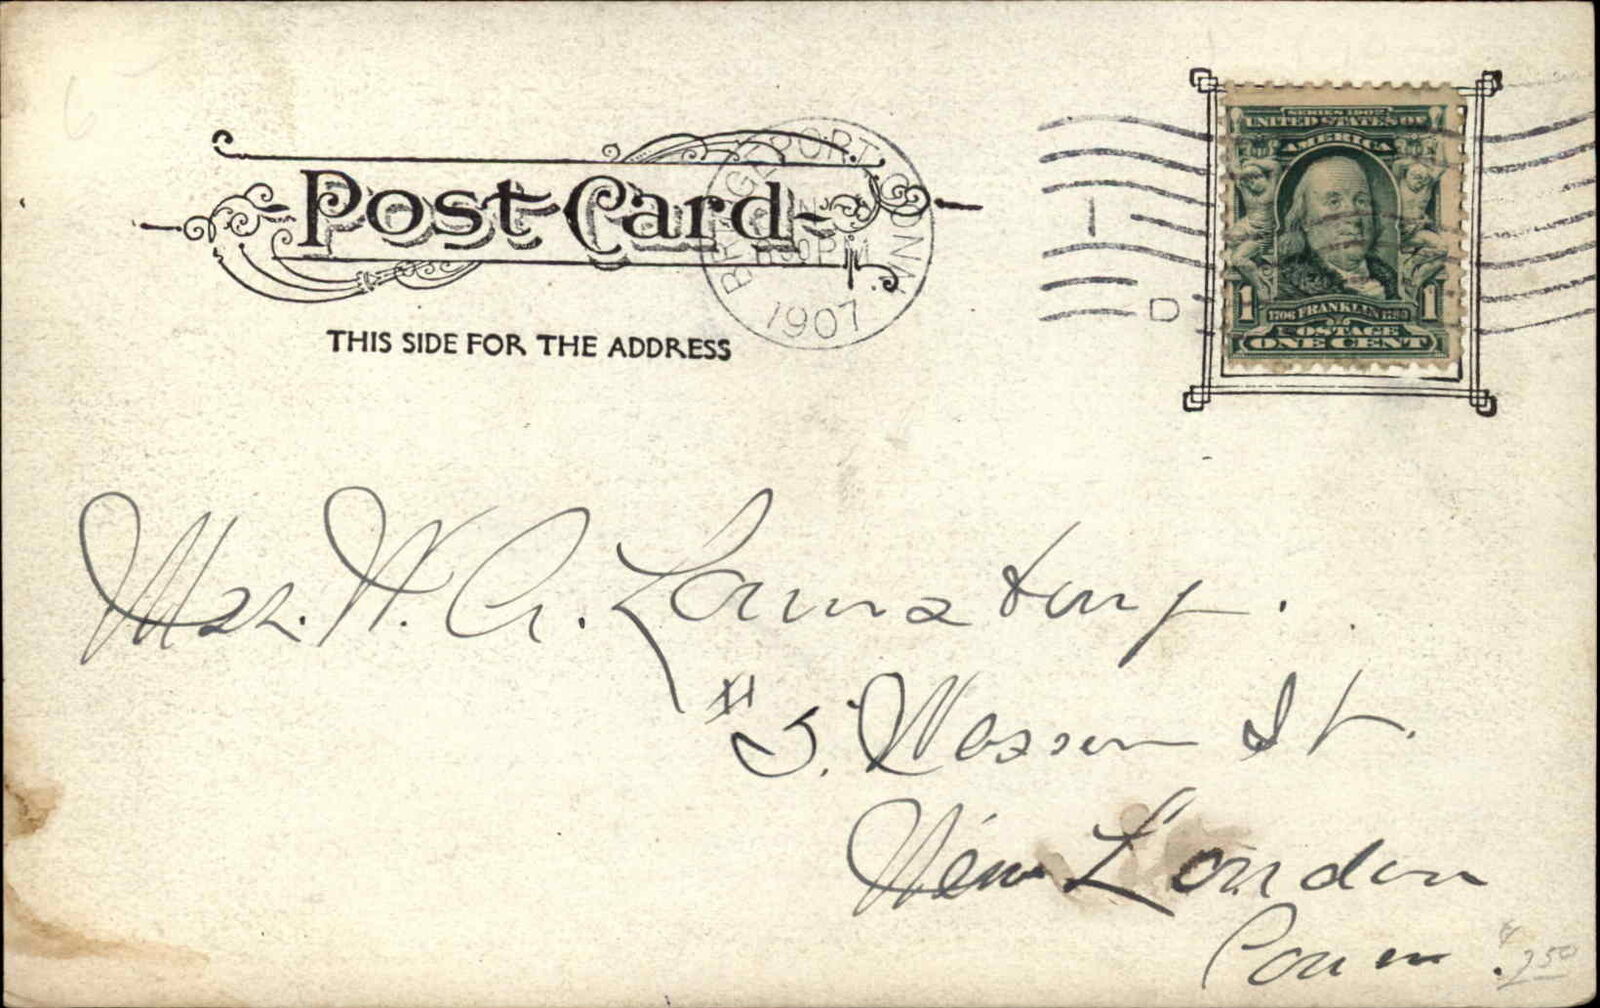 Post Card
THIS SIDE FOR THE ADDRESS
BRIDGEPORT CONN.
30 PM
1907
1
D
SERIES 1902
UNITED STATES OF
AMERICA
1 1
1706 FRANKLIN 1790
POSTAGE
ONE CENT
Mrs. W. A. Lounsbury.
# 5. Wasson St.
New London
Conn.
2 50